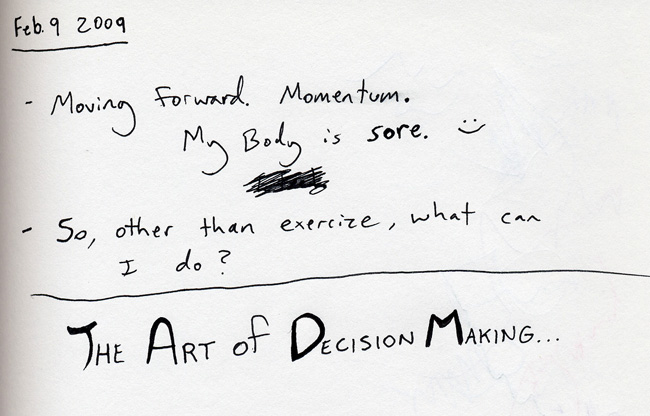 Feb. 9 2009
- Moving Forward. Momentum.
My Body is sore. :)
- So, other than exercize, what can
I do?
THE ART of DECISION MAKING...